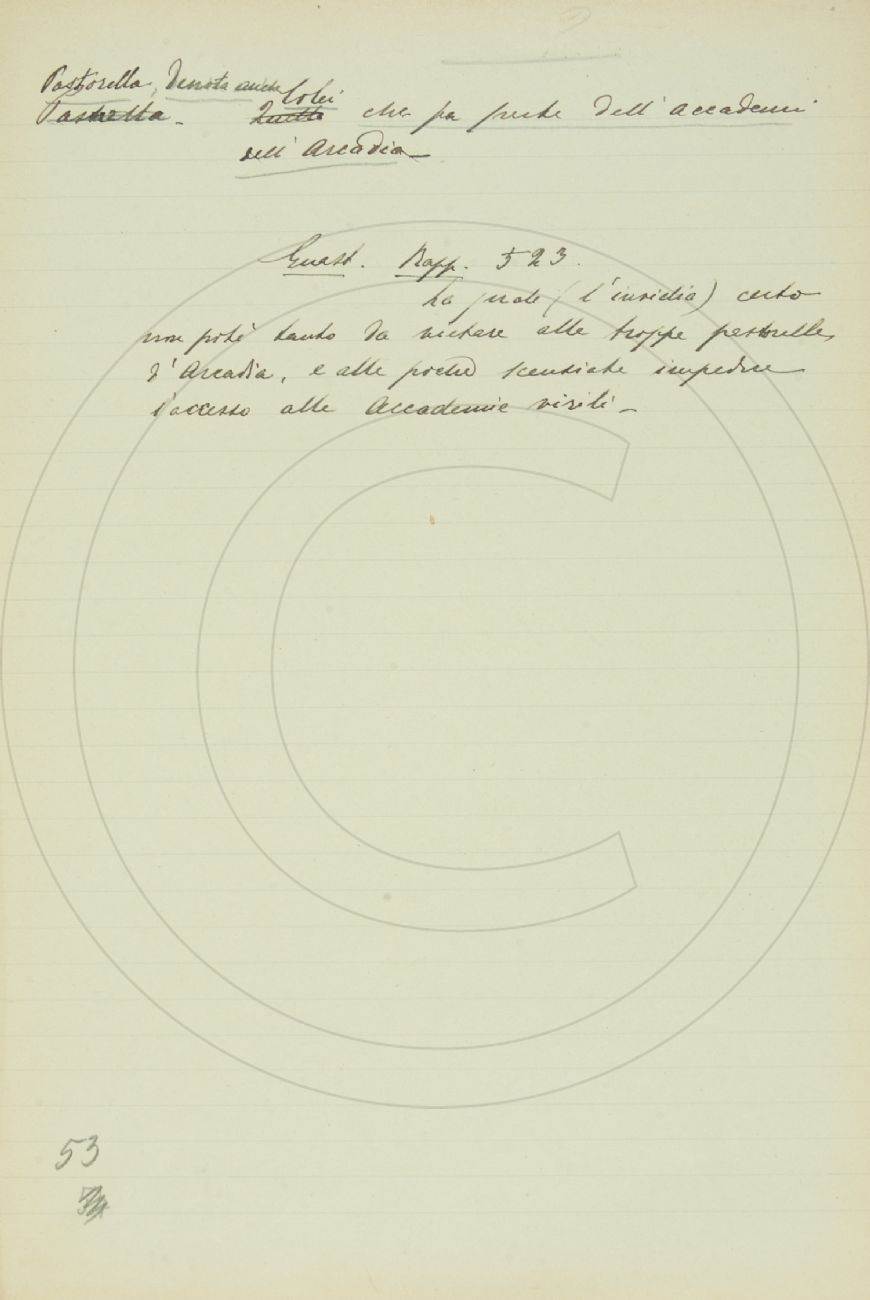 Pastorella, Denota anche Colei
Pastorella. Quella che fa parte dell'accademia
dell'Arcadia
Guast. Rapp. 523.
La quale (l'invidia) certo
non potè tanto da vietare alle troppe pastorelle
d'Arcadia, e alle poche scenziate impedire
l'accesso alle Accademie virili.
53